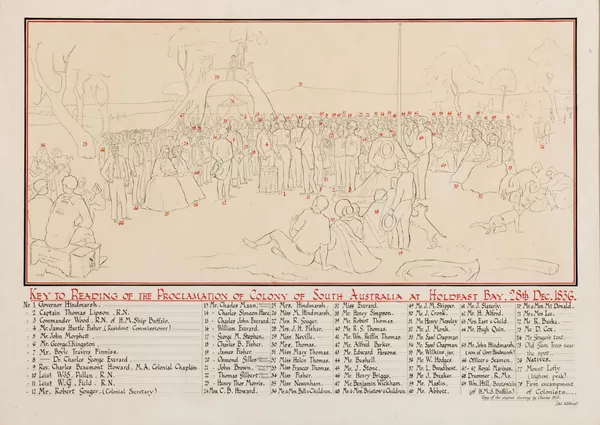 KEY TO READING OF THE PROCLAMATION OF COLONY OF SOUTH AUSTRALIA AT HOLDFAST BAY, 28th DEC. 1836.
No 1 Governor Hindmarsh.
2 Captain Thomas Lipson. R.N.
3 Commander Wood. R.N. of H.M. Ship Buffalo.
4 Mr. James Hurtle Fisher (Resident Commissioner)
5 Mr. John Morphett
6 Mr. George Kingston
7 Mr. Boyle Travers Finniss.
8 Dr. Charles George Everard.
9 Rev. Charles Beaumont Howard, M.A. Colonial Chaplain
10 Leist W.S. Pullen. R.N.
11 Leist W.G. Field. R.N.
12 Mr. Robert Gouger. (Colonial Secretary)
13 Mr. Charles Mann.
14 Charles Simeon Hare.
15 Charles John Everard.
16 William Everard.
17 George M. Stephen.
18 Charles B. Fisher.
19 James Fisher.
20 Osmond Gilles
21 John Brown.
22 Thomas Gilbert
23 Henry Thos Morris.
24 Mrs C.B. Howard.
25 Mrs. Hindmarsh.
26 Miss M. Hindmarsh.
27 Mrs. R. Gouger.
28 Mrs. J.H. Fisher.
29 Miss Neville.
30 Mrs. Thomas.
31 Miss Mary Thomas.
32 Miss Helen Thomas.
33 Miss Frances Thomas.
34 Miss Fisher.
35 Miss Newenham.
36 Mr & Mrs Bills & Children.
37 Miss Everard.
38 Mr. Henry Simpson.
39 Mr. Robert Thomas.
40 Mr. R.S. Thomas.
41 Mr. Wm. Kyffin Thomas.
42 Mr. Alfred Barker.
43 Mr. Edward Parsons.
44 Mr. Bushell.
45 Mr. J. Stone.
46 Mr. Henry Briggs.
47 Mr. Benjamin Wickham.
48 Mr & Mrs Bristow & Children.
49 Mr. J.M. Skipper.
50 Mr. J. Cronk.
51 Mr. Henry Mawley
52 Mr. J. Monk.
53 Mr. Saml Chapman
54 Mr. Saml Chapman
55 Mr. Williams, junr.
56 Mr. W. Hodges.
57 Mr. L. Broadbent.
58 Mr. J. Breaker.
59 Mr. Maslin.
60 Mr. Abbott.
61 Mr. J. Slaterly.
62 Mr. H. Alford.
63 Mrs East & Child.
64 Mr. Hugh Quin.
65 Mr. John Hindmarsh,
(son of Govr Hindmarsh)
66 Officers Seamen,
67 Royal Marines.
68 Drummer. R. Ms.
69 Wm. Hill, Boatswain
(of H.M.S. Buffalo)
70 Mr. & Mrs. Mc. Donald.
71 Mrs. Mc. Lee.
72 Mr. R. Burke.
73 Mr. D. Cox.
74 Mr. Gouger's tent.
75 Old Gum tree near
the spot.
76 Natives.
77 Mount Lofty
(highest peak)
78 First encampment
of Colonists.
Copy of the original drawing by Charles Hill.